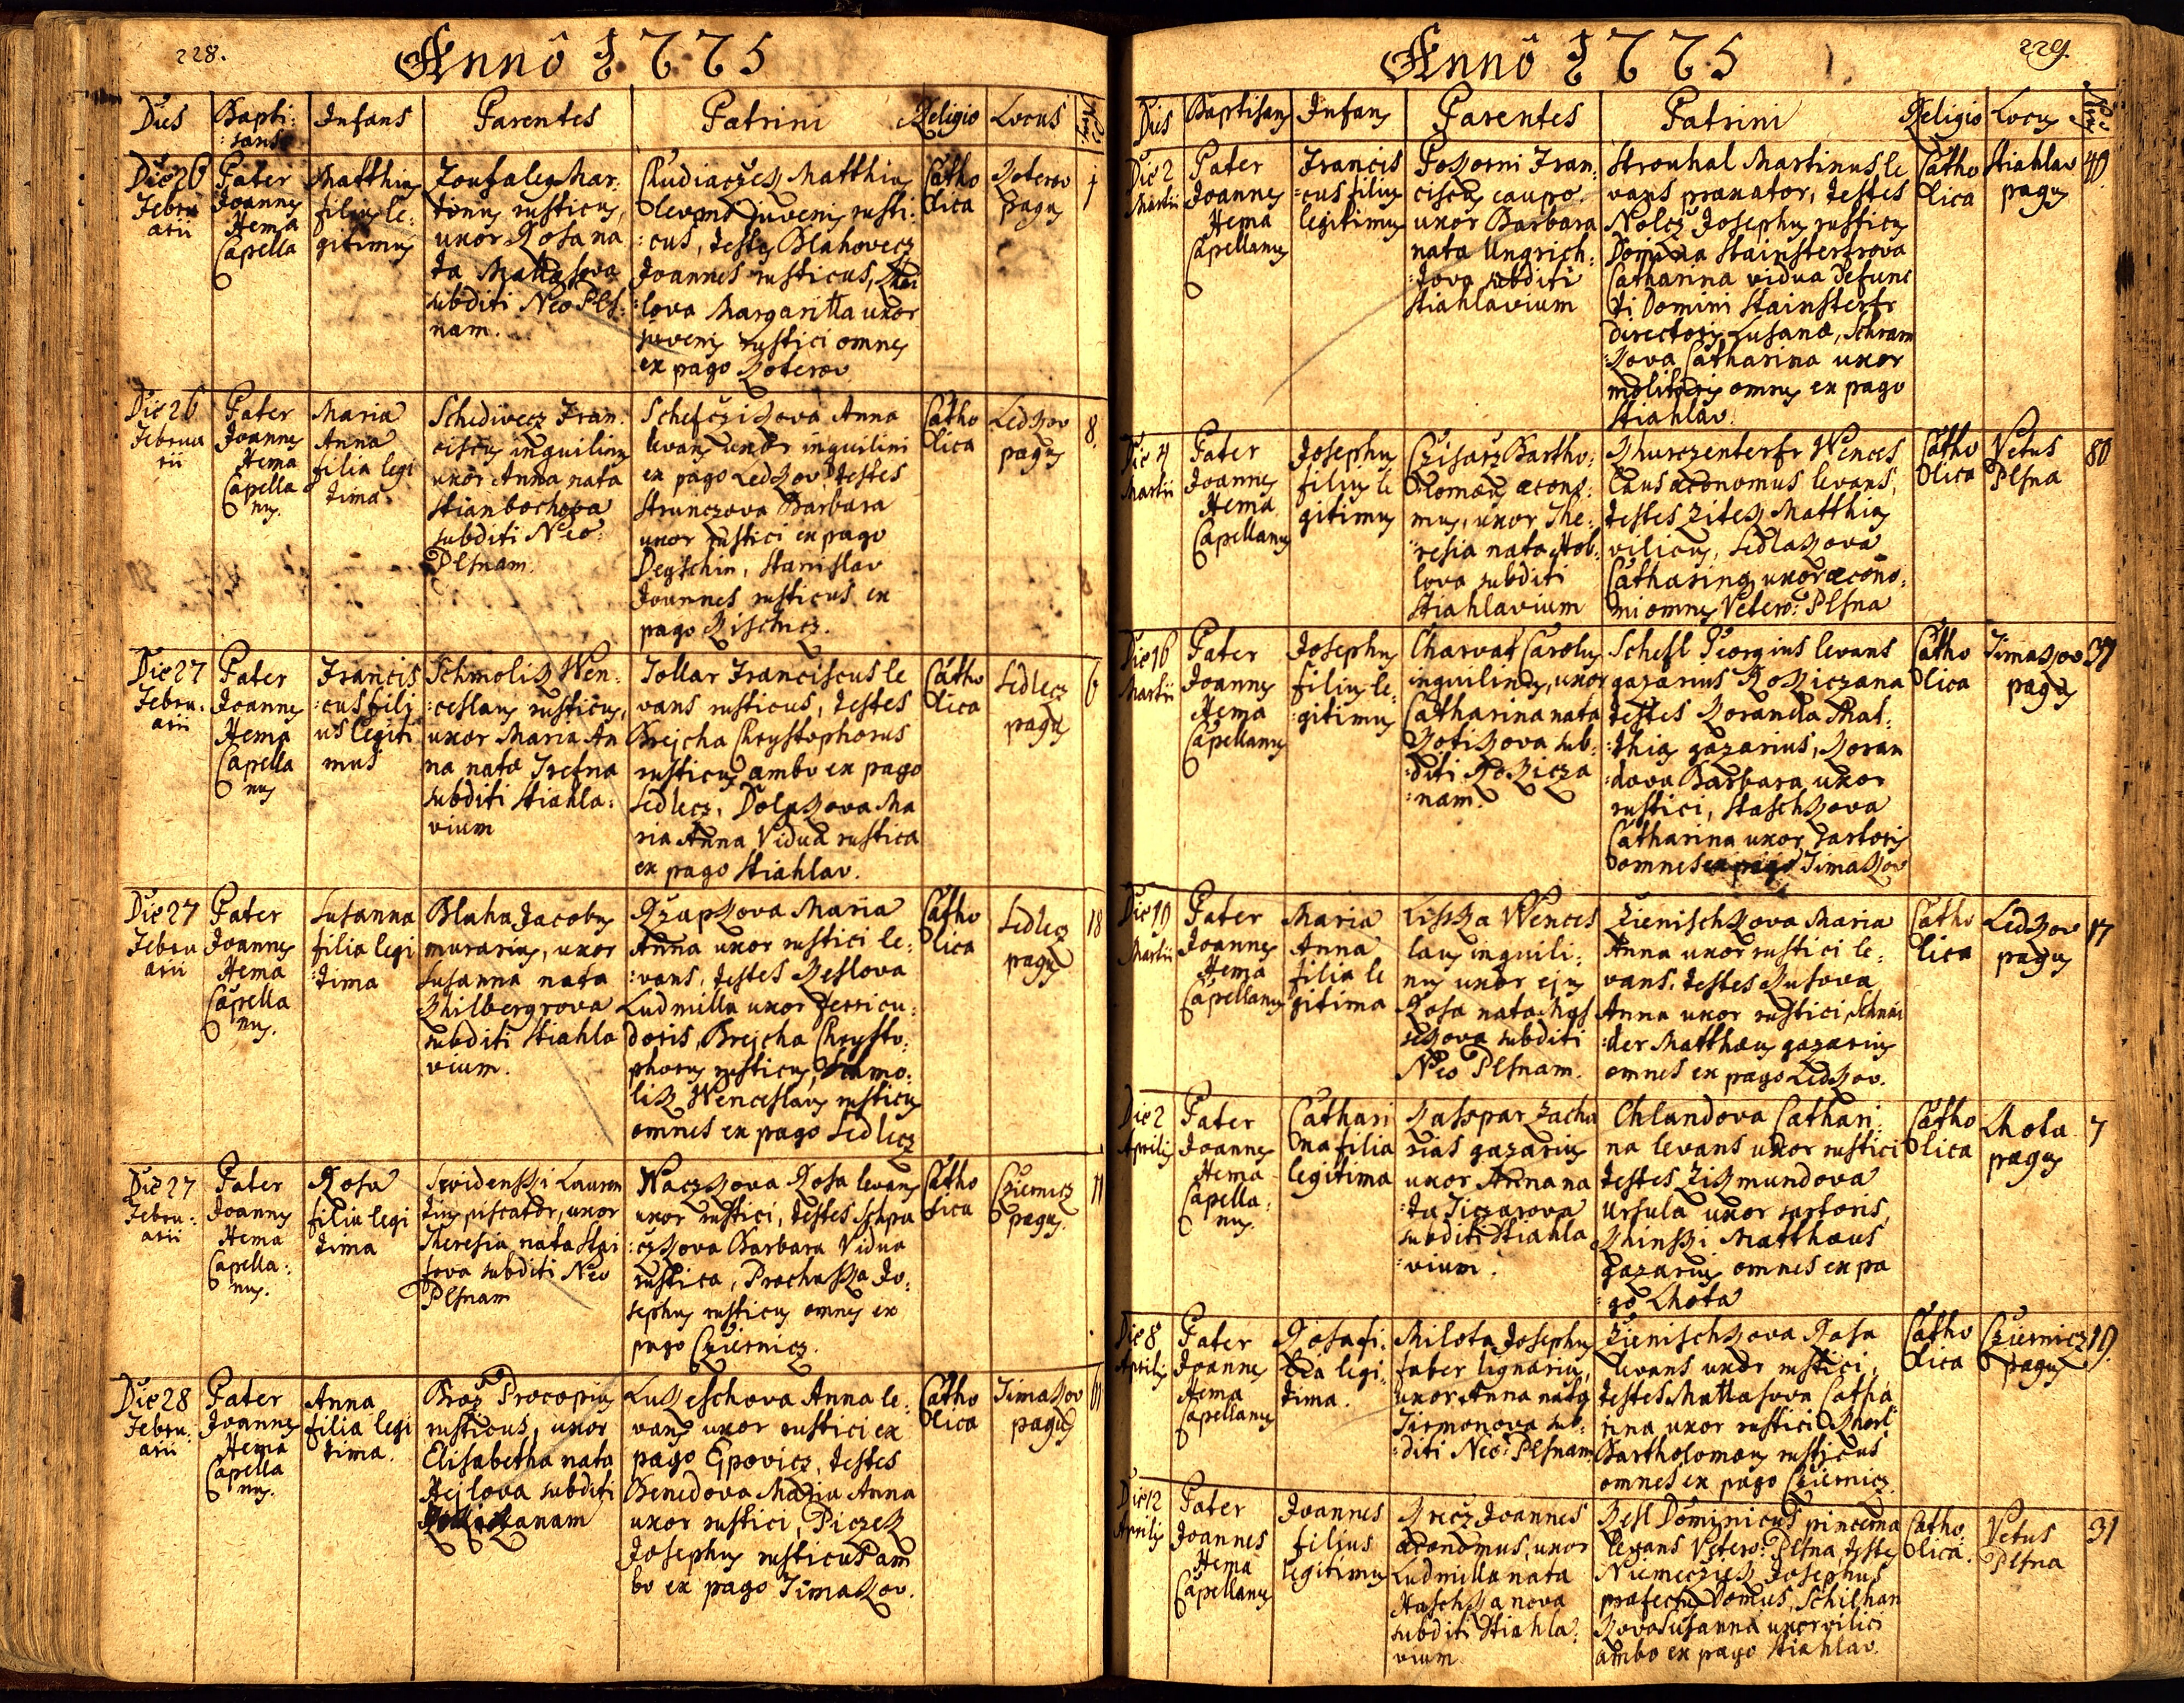 228.
Anno 1775
Dies
Bapti:
:sans
Infans
Parentes
Patrini
Religio
Locus
Die 26
Febru
arii
Pater
Joannes
Hema
Capella
Matthias
filius le:
gitimus
Martinus rusticus,
uxor Rosa na
ta
subditi Neo Pls:
nam.
Matthias
levans juvenis rusti:
:cus, testes Blahovecz
Joannes rusticus,
lova Margaritta uxor
juvenis rustici omnes
ex pago Koterov
Catho
lica
Koterov
pagus
1
Die 26
Februa
rii
Pater
Joannes
Hema
Capella
nus.
Maria
Anna
filia legi
tima
Schediwecz Fran:
ciscus inquilinus
uxor Anna nata
Stiambochova
subditi Neo:
Plsnam.
Schefczikova Anna
levans uxor inquilini
ex pago Ledkov, testes
Strunczova Barbara
uxor rustici ex pago
Deyschin, Stanislav
Joannes rusticus ex
pago Kischicz.
Catho
lica
Ledkov
pagus
8.
Die 27
Febru:
arii
Pater
Joannes
Hema
Capella
nus
Francis
:cus fili
us legiti
mus
Schmolik Wen:
:ceslaus rusticus,
uxor Maria An
na nata Trefna
subditi Stiahla:
vium
Tollar Franciscus le
vans rusticus, testes
Brejcha Chrystophorus
rusticus ambo ex pago
Sedlecz, Dolazova Ma
ria Anna Vidua rustica
ex pago Stiahlav.
Catho
lica
Sedlecz
pagus
6
Die 27
Febru
arii
Pater
Joannes
Hema
Capella
nus.
Susanna
filia legi
:tima
Blaha Jacobus
murarius, uxor
Susanna nata
Khilbergrova
subditi Stiahla
vium.
Krzapkova Maria
Anna uxor rustici le:
:vans, testes Keslova
Ludmilla uxor
doris, Brejcha Chrysto:
phorus rusticus, Schmo:
lik Wenceslaus rusticus
omnes ex pago Sedlecz
Catho
lica
Sedlecz
pagus
18
Die 27
Febru:
arii
Pater
Joannes
Hema
Capella:
nus.
Rosa
filia legi
tima
Svidenski Lauren
tius piscator, uxor
Theresia nata Stai
fova subditi Neo
Plsnam
Waczkova Rosa levans
uxor rustici, testes Schpa
:czkova Barbara Vidua
rustica, Prochaska Jo:
sephus rusticus omnes ex
pago Cziernicz.
Catho
lica
Cziernicz
pagus.
11
Die 28
Febru:
arii
Pater
Joannes
Hema
Capella
nus.
Anna
filia legi
tima.
Broz Procopius
rusticus, uxor
Elisabetha nata
Hejlova subditi
Rokiczanam
Lukeschova Anna le:
vans uxor rustici ex
pago Ejpovicz, testes
Benedova Maria Anna
uxor rustici, Piczek
Josephus rusticus am
bo ex pago Timakov.
Catho
lica
Timakov
pagus
61
229.
Anno 1775
Dies
Baptisans
Infans
Parentes
Patrini
Religio
Locus
Die 2
Martii
Pater
Joannes
Hema
Capellanus
Francis
:cus filius
legitimus
Pokorni Fran:
ciscus caupo
uxor Barbara
nata Ungrich:
:tova subditi
Stiahlavium
Strouhal Martinus le
vans pranator, testes
Nolcz Josephus rusticus
Domina Stainsterfrova
Catharina vidua defunc
ti Domini Stainsterfr
directoris Lusana, Schram
:kova Catharina uxor
molitoris omnes ex pago
Stiahlav.
Catho
lica
Stiahlav
pagus
40.
Die 4
Martii
Pater
Joannes
Hema
Capellanus
Josephus
filius le
gitimus
Czisarz Bartho:
lomæus æcono:
mus, uxor The:
resia nata Hol:
lova subditi
Stiahlavium
Khurczenterfr Wences
laus æconomus levans,
testes Zitek Matthias
vilicus, Sedlakova
Catharina uxor æcono:
mi omnes Vetero: Plsna
Catho
lica
Vetus
Plsna
80
Die 16
Martii
Pater
Joannes
Hema
Capellanus
Josephus
filius le:
:gitimus
Charvat Carolus
inquilinus, uxor
Catharina nata
Kotikova sub:
:diti Rokicza
:nam.
Schesl Georgius levans
gazarius Rokiczana
testes Koranda Mat:
:thias gazarius, Koran
:dova Barbara uxor
rustici, Staschkova
Catharina uxor sartoris
omnes ex pago Timakov
Catho
lica
Timakov
pagus
37
Die 19
Martii
Pater
Joannes
Hema
Capellanus
Maria
Anna
filia le
gitima
Liska Wences
laus inquili:
nus uxor ejus
Rosa nata
sekova subditi
Neo Plsnam.
Zienischkova Maria
Anna uxor rustici le:
vans, testes Kusova
Anna uxor rustici, Schnai
:der Matthæus gazarius
omnes ex pago Ledkov.
Catho
lica
Ledkov
pagus
17
Die 2
Aprilis
Pater
Joannes
Hema
Capella:
nus.
Cathari
na filia
legitima
Kasspar Zacha
rias gazarius
uxor Anna na
:ta Ticzarova
subditi Stiahla
:vium.
Chlandova Cathari:
na levans uxor rustici
testes Zikmundova
Ursula uxor sartoris,
Khinski Matthæus
gazarius omnes ex pa
:go Lhota
Catho
lica
Lhota
pagus
7
Die 8
Aprilis
Pater
Joannes
Hema
Capellanus
Rosa fi:
lia legi:
tima.
Milota Josephus
faber lignarius,
uxor Anna nata
Tirmonova sub:
:diti Neo: Plsnam
Zienischkova Rosa
levans uxor rustici,
testes Mattasova Catha
rina uxor rustici
Bartholomæus rusticus
omnes ex pago Cziernicz.
Catho
lica
Cziernicz
pagus
19.
Die 12
Aprilis
Pater
Joannes
Hema
Capellanus
Joannes
filius
legitimus
Krecz Joannes
æconomus, uxor
Ludmilla nata
Haschkanova
subditi Stiahla:
vium
Kesl Dominicus pincerna
levans Vetero: Plsna, teste
Niemecziek Josephus
præfectus Domus, Schilhan
kova Susanna uxor vilici
ambo ex pago Stiahlav.
Catho
lica.
Vetus
Plsna
31